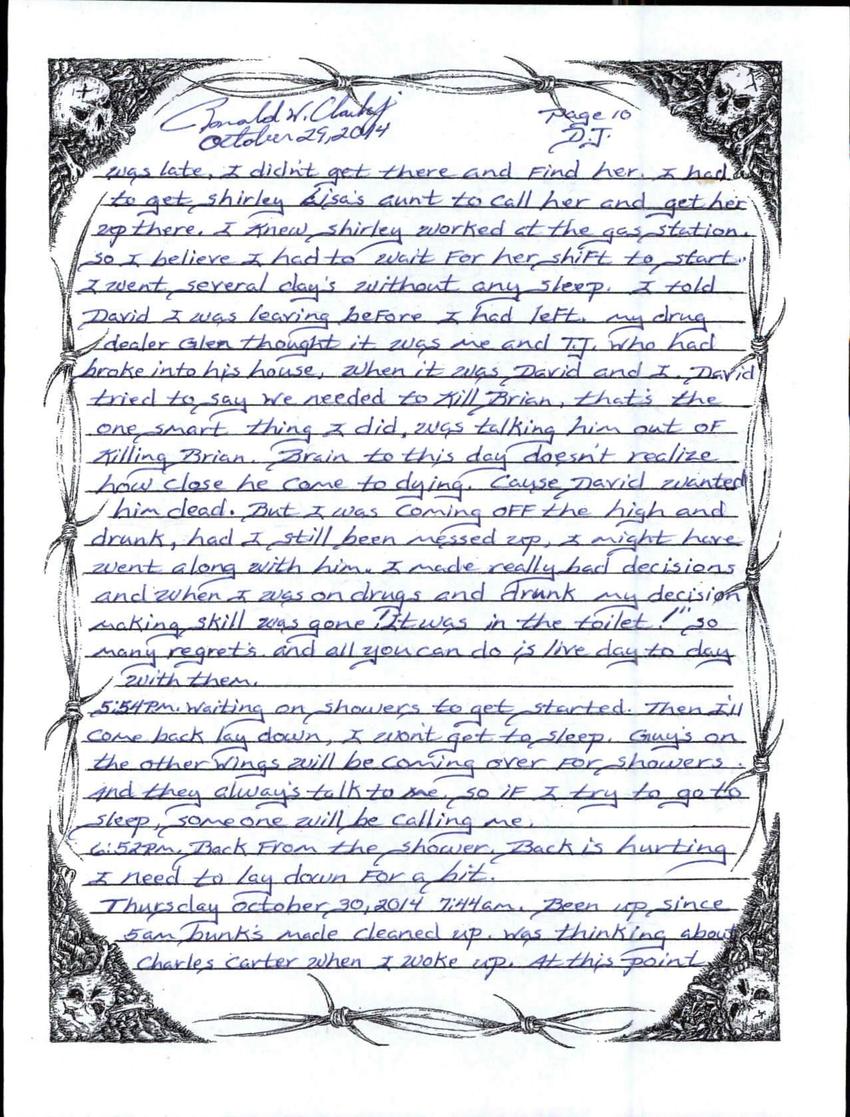 Ronald W. Clark Jr
Page 10
October 29, 2014
D.J.
was late, I didn't get there and Find her. I had
to get shirley Lisa's aunt to call her and get her
up there. I knew shirley worked at the gas station.
so I believe I had to wait For her shift to start.
I went several day's without any sleep. I told
David I was leaving before I had left. my drug
dealer Glen thought it was me and T.J. who had
broke into his house, when it was David and I. David
tried to say we needed to Kill Brian, that's the
one smart thing I did, was talking him out of
Killing Brian. Brain to this day doesn't realize
how close he come to dying. Cause David wanted
him dead. But I was coming off the high and
drunk, had I still been messed up, I might have
went along with him. I made really bad decisions
and when I was on drugs and drunk my decision
making skill was gone "It was in the toilet!" so
many regret's and all you can do is live day to day
with them.
5:54pm. Waiting on showers to get started. Then I'll
come back lay down, I won't get to sleep. Guy's on
the other wings will be coming over For showers.
And they alway's talk to me, so if I try to go to
sleep, someone will be calling me.
6:52pm. Back From the shower. Back is hurting
I need to lay down For a bit.
Thursday October 30, 2014 7:44am. Been up since
5am bunk's made cleaned up. was thinking about
Charles Carter when I woke up. At this point